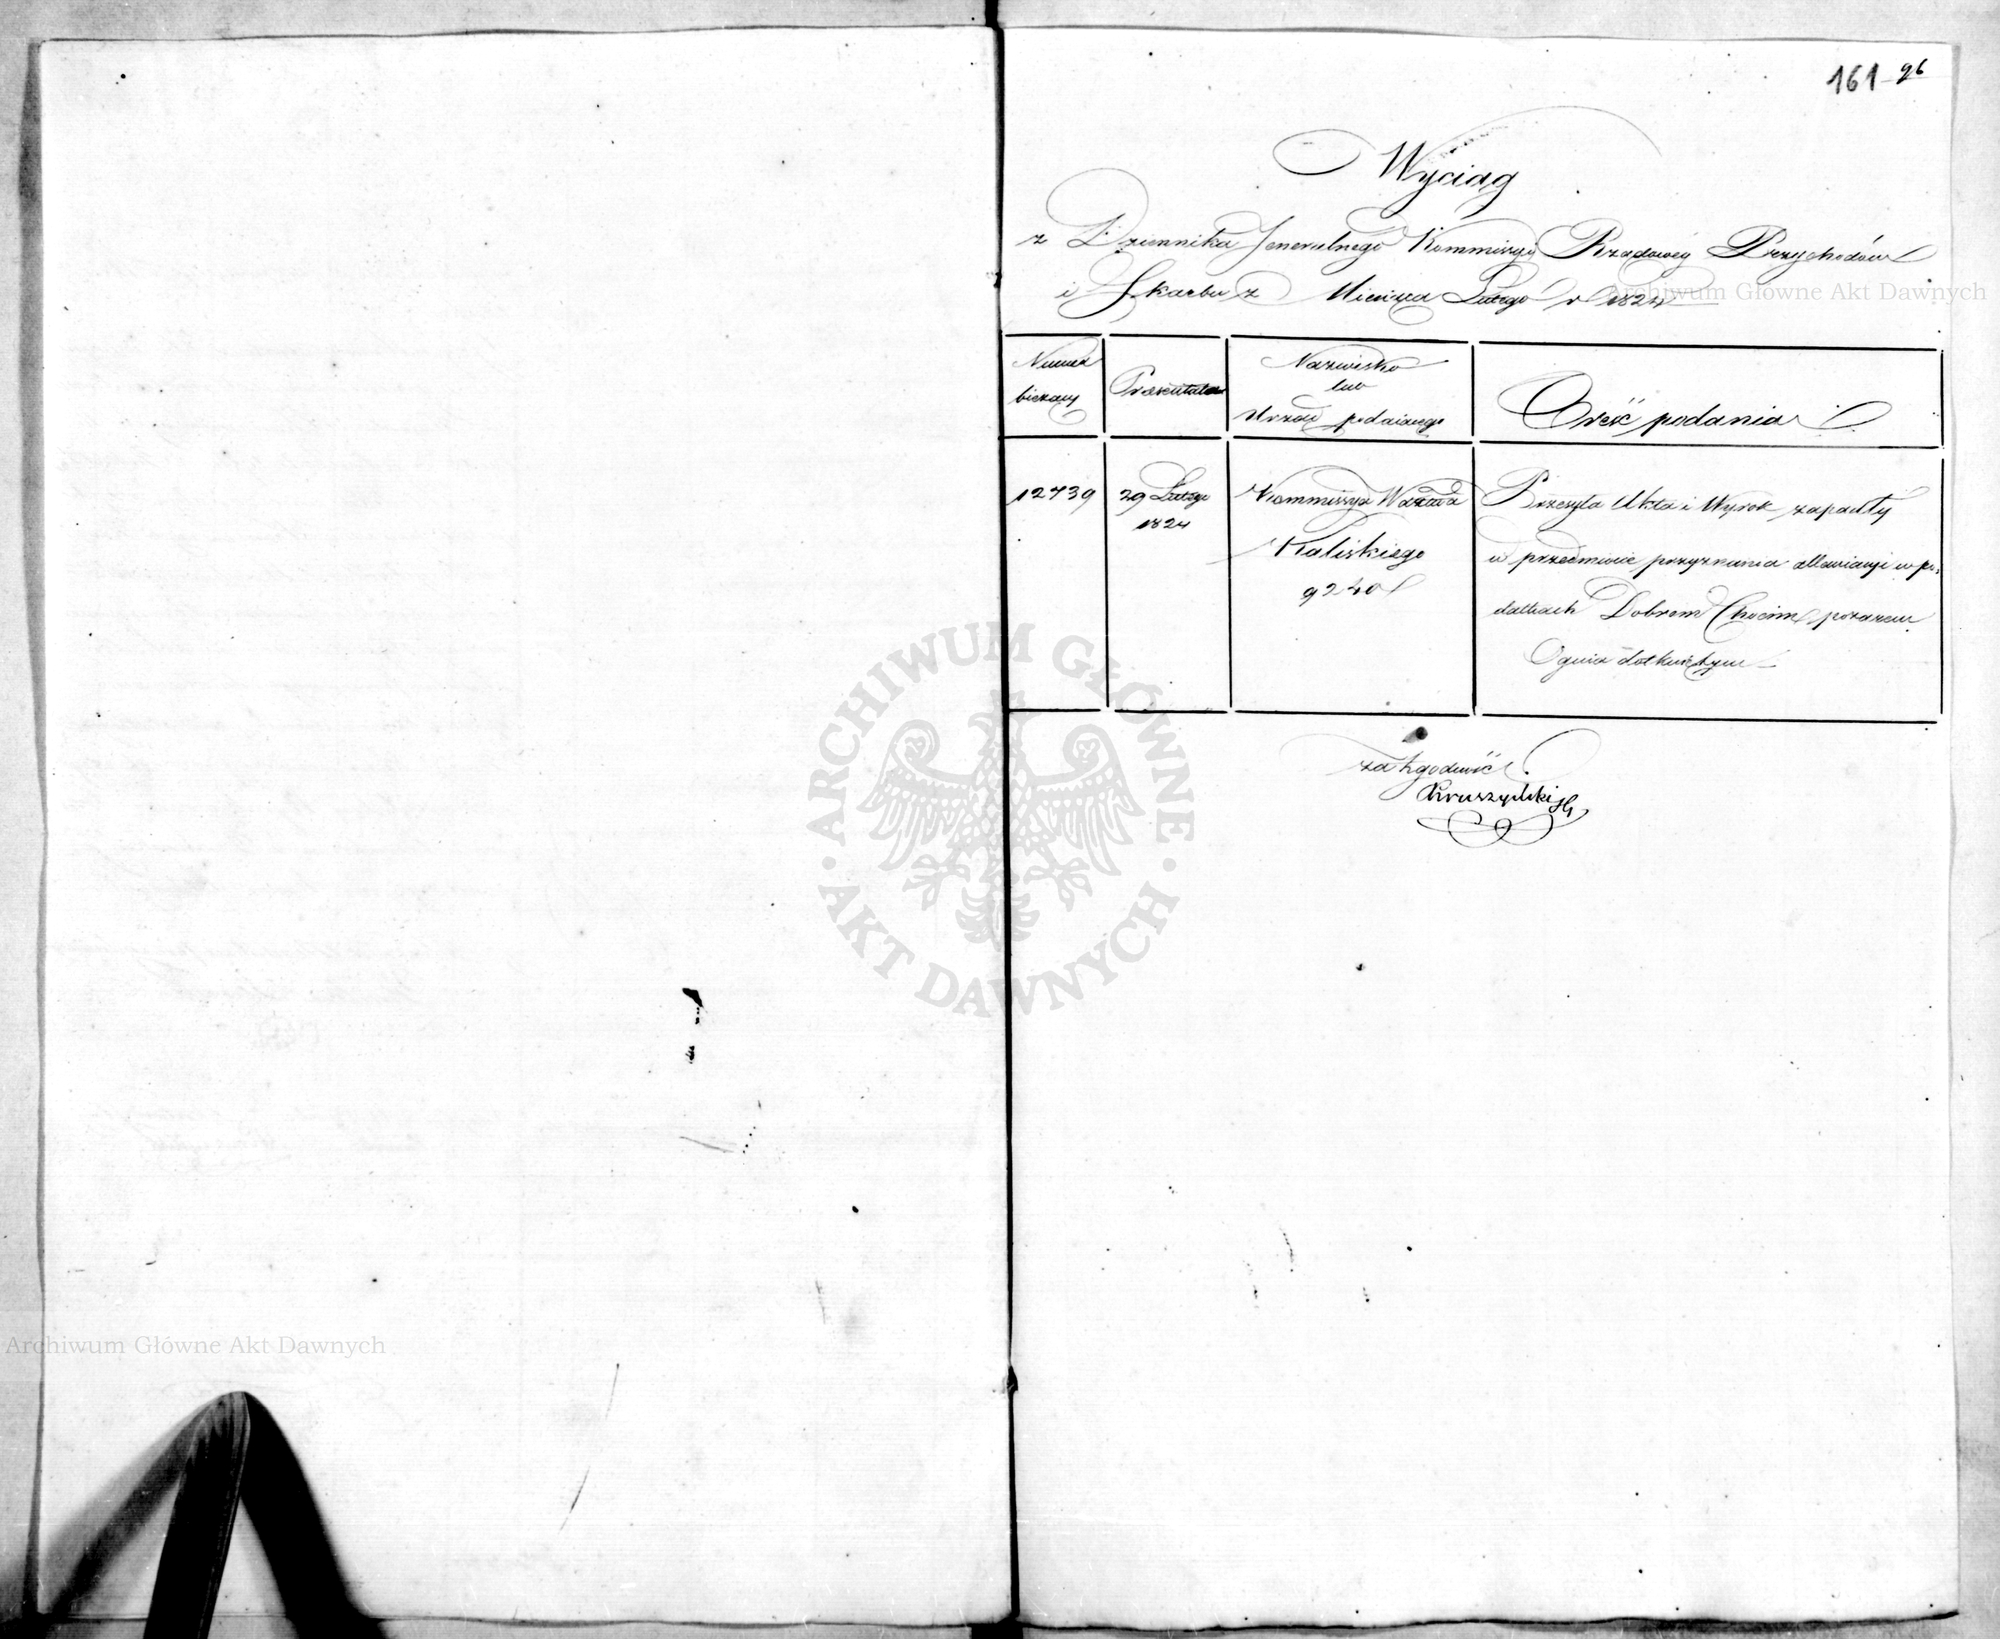 161 96
Wyciąg
z Dziennika Jeneralnego Kommissyi Rządowey Przychodów
i Skarbu z Miesiąca Lutego r 1824
Numer
bieżący
Praesentata
Nazwisko
lub
Urząd podaiącego
Treść podania
12739
29 Lutego
1824
Kommissya Wdztwa
Kaliskiego
9240
Przesyła Akta i Wyrok zapadły
w przedmiocie przyznania allewiacyi w po-
datkach Dobrom Chocim pożarem
Ognia dotkniętym
za zgodność
Kruszyński
Archiwum Główne Akt Dawnych
ARCHIWUM GŁÓWNE
AKT DAWNYCH
Archiwum Główne Akt Dawnych